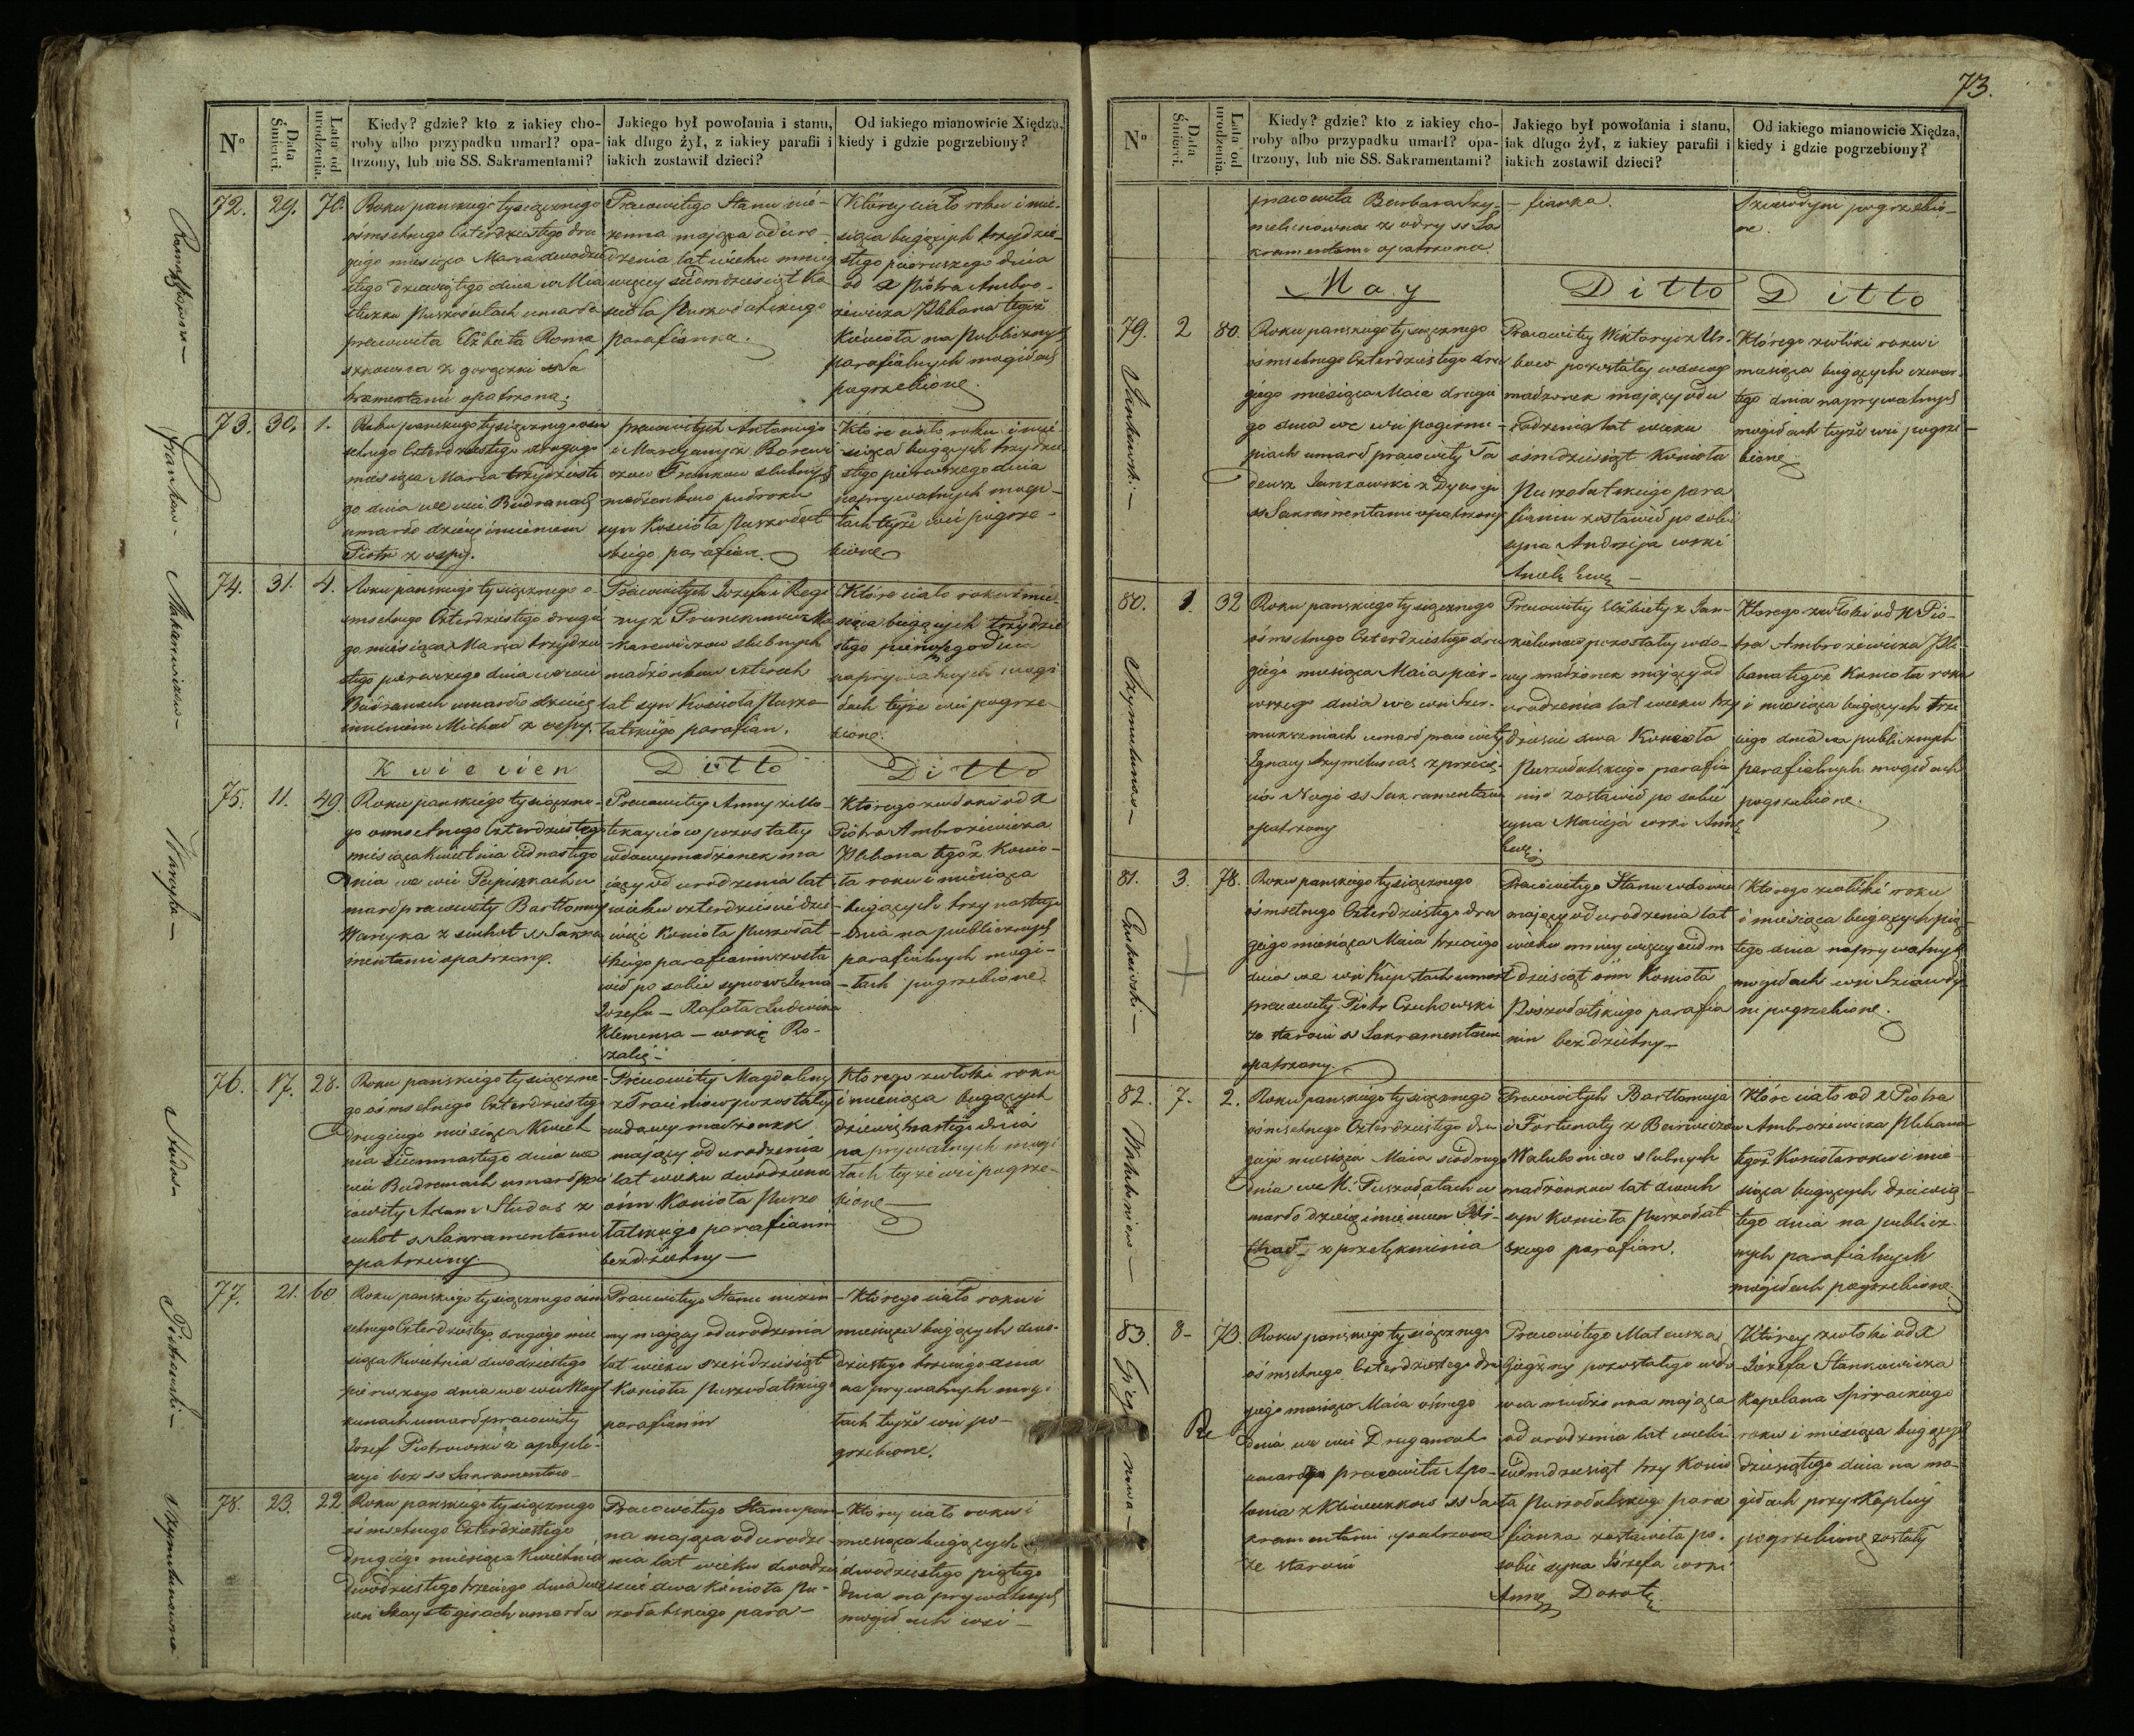 73.
Nº
Data Śmierci.
Lata od urodzenia.
Kiedy? gdzie? kto z iakiey cho-
roby albo przypadku umarł? opa-
trzony, lub nie SS. Sakramentami?
Jakiego był powołania i stanu,
iak długo żył, z iakiey parafii i
iakich zostawił dzieci?
Od iakiego mianowicie Xiędza,
kiedy i gdzie pogrzebiony?
72. 29. 70.
Roku panskiego tysiącznego
osmsetnego Czterdziestego dru
giego miesiąca Marca dwudzie
stego dziewiątego dnia w Mia
steczku Puszołatach umarła
pracowita Elżbieta Roma
szkowna z gorączki SS Sa
kramentami opatrzona.
Pracowitego Stanu nie-
zenna mająca od uro-
dzenia lat wieku mniey
więcey siedmdziesiąt Ko
scioła Puszołatskiego
parafianka.
Którey ciało roku i mie-
siąca bieżących trzydzie-
stego pierwszego dnia
od X Piotra Ambro-
żewicza Plebana tegoż
Kościoła na Publicznych
parafialnych mogiłach
pogrzebione.
73. 30. 1.
Roku panskiego tysiącznego osm
setnego Czterdziestego drugiego
miesiąca Marca trzydzieste
go dnia we wsi Budranach
umarło dziecie imieniem
Piotr z ospy.
pracowitych Antoniego
i Marcyanny z Borewi
czow Frankow slubnych
małżonkow półroku
syn Kościoła Puszołat
skiego parafian.
Które ciało roku i mie-
siąca bieżących trzydzie
stego pierwszego dnia
na prywatnych mogi-
łach tejże wsi pogrze-
bione
74. 31. 4.
Roku panskiego tysiącznego o-
smsetnego Czterdziestego drugie
go miesiąca Marca trzydzie
stego pierwszego dnia we wsi
Budranach umarło dziecie
imieniem Michał z ospy.
Pracowitych Jozefa i Regi
ny z Prunckunow Ma
karewiczow slubnych
małżonkow czterech
lat syn Kościoła Puszo
łatskiego parafian.
Które ciało roku i mie-
siąca bieżących trzydzie
stego pierwszego dnia
na prywatnych mogi
łach tejże wsi pogrze-
bione.
Kwiecien
Ditto
Ditto
75. 11. 49.
Roku panskiego tysiączne-
go osmsetnego Czterdziestego
miesiąca Kwietnia iednastego
dnia we wsi Papiszkach u
marł pracowity Bartłomiey
Waryka z suchot SS Sakra
mentami opatrzony.
Pracowitey Anny z Mo-
tekayciow pozostały
wdowy małżonek ma
iący od urodzenia lat
wieku czterdzieści dzie
więć Kościoła Puszołat
skiego parafianin zosta
wił po sobie synow Jana
Jozefa - Rafała Ludwika
Klemensa - corkę Ro-
zalię -
Którego zwłoki od X
Piotra Ambrożewicza
Plebana tegoż Kościo-
ła roku i miesiąca
bieżących trzynastego
dnia na publicznych
parafialnych mogi-
łach pogrzebione.
76. 17. 28.
Roku panskiego tysiączne
go osmsetnego Czterdziestego
drugiego miesiąca Kwiet
nia siedmnastego dnia we
wsi Budranach umarł pra
cowity Adam Studas z
suchot SS Sakramentami
opatrzony
Pracowitey Magdaleny
pozostałey
wdowy małżonek
mający od urodzenia
lat wieku dwadzieścia
ośm Kościoła Puszo
łatskiego parafianin
bezdzietny -
Którego zwłoki roku
i miesiąca bieżących
dziewiętnastego dnia
na prywatnych mogi
łach tejże wsi pogrze-
bione
77. 21. 60
Roku panskiego tysiącznego osm
setnego Czterdziestego drugiego mie
siąca Kwietnia dwudziestego
pierwszego dnia we wsi
umarł pracowity
Jozef Piotrowski z apople-
xyi bez SS Sakramentow
Pracowitego Stanu niezen
ny mający od urodzenia
lat wieku sześćdziesiąt
Kościoła Puszołatskiego
parafianin
Którego ciało roku i
miesiąca bieżących dwu-
dziestego trzeciego dnia
na prywatnych mogi
łach tejże wsi po-
grzebione.
78. 23. 22.
Roku panskiego tysiącznego
ośmsetnego Czterdziestego
drugiego miesiąca Kwietnia
dwudziestego trzeciego dnia we
wsi Szaystogirach umarła
Pracowitego Stanu pan
na mająca od urodze
nia lat wieku dwadzie
ścia dwa Kościoła Pu-
szołatskiego para-
Którey ciało roku i
miesiąca bieżących
dwudziestego piątego
dnia na prywatnych
mogiłach wsi -
Romaszkowna -
Frankow -
Makarewiczow -
Waryka -
Studas -
Piotrowski -
Szymelunowna
Nº
Data Śmierci.
Lata od urodzenia.
Kiedy? gdzie? kto z iakiey cho-
roby albo przypadku umarł? opa-
trzony, lub nie SS. Sakramentami?
Jakiego był powołania i stanu,
iak długo żył, z iakiey parafii i
iakich zostawił dzieci?
Od iakiego mianowicie Xiędza,
kiedy i gdzie pogrzebiony?
pracowita Barbara Szy-
melunowna z odry SS Sa
kramentami opatrzona
- fianka.
pogrzebio-
ne.
May
Ditto
Ditto
79. 2 80.
Roku panskiego tysiącznego
osmsetnego Czterdziestego dru
giego miesiąca Maia drugie
go dnia we wsi Pagiernu-
piach umarł pracowity Ta
deusz Jankowski z Dyaryi
SS Sakramentami opatrzony
Pracowitey Wiktoryi z Ur-
bow pozostały wdowy
małżonek mający od u
rodzenia lat wieku
ośmdziesiąt Kościoła
Puszołatskiego para
fianin zostawił po sobie
syna Andrzeja corki
Anielę Ewę -
Którego zwłoki roku i
miesiąca bieżących czwar-
tego dnia na prywatnych
mogiłach tejże wsi pogrze-
bione.
80. 1. 32
Roku panskiego tysiącznego
ośmsetnego Czterdziestego dru
giego miesiąca Maia pier-
wszego dnia we wsi
umarł pracowity
Ignacy Szymelunas z
Nogi SS Sakramentami
opatrzony
Pracowitey Elżbiety z Jan-
pozostały wdo-
wy małżonek mający od
urodzenia lat wieku trzy
dzieści dwa Kościoła
Puszołatskiego parafia
nin zostawił po sobie
syna Macieja corki Annę
Ewę.
Ktorego zwłoki od X Pio-
tra Ambrożewicza Ple-
bana tegoż Kościoła roku
i miesiąca bieżących trze
ciego dnia na publicznych
parafialnych mogiłach
pogrzebione.
81. 3. 78.
Roku panskiego tysiącznego
ośmsetnego Czterdziestego dru
giego miesiąca Maia trzeciego
dnia we wsi umarł
pracowity Piotr Czechowski
ze starości SS Sakramentami
opatrzony.
Pracowitego Stanu wdowiec
mający od urodzenia lat
wieku mniey więcey siedm
dziesiąt ośm Kościoła
Puszołatskiego parafia
nin bezdzietny -
Którego zwłoki roku
i miesiąca bieżących pią-
tego dnia na prywatnych
mogiłach wsi
pogrzebione.
82. 7. 2.
Roku panskiego tysiącznego
ośmsetnego Czterdziestego dru
giego miesiąca Maia siodmego
dnia we M: Puszołatach u
marło dziecie imieniem Mi-
chał - z przelęknienia
Pracowitych Bartłomieja
i Fortunaty z
slubnych
małżonkow lat dwoch
syn Kościoła Puszołat
skiego parafian.
Które ciało od X Piotra
Ambrożewicza Plebana
tegoż Kościoła roku i mie-
siąca bieżących dziewią-
tego dnia na publicz-
nych parafialnych
mogiłach pogrzebione
83. 8- 73.
Roku panskiego tysiącznego
ośmsetnego Czterdziestego dru
giego miesiąca Maia osmego
dnia we wsi Druganach
umarła pracowita Apo-
lonia z SS Sa
kramentami opatrzona
ze starości
Pracowitego Mateusza
pozostałego wdo
wca małżonka mająca
od urodzenia lat wieku
siedmdziesiąt trzy Kościo
ła Puszołatskiego para
fianka zostawiła po
sobie syna Jozefa corki
Annę Dorotę
Którey zwłoki od X
Jozefa Stankiewicza
Kapelana
roku i miesiąca bieżących
dziesiątego dnia na mo-
giłach przy Kaplicy
pogrzebione zostały
Jankowski -
Szymelunas -
Czechowski -